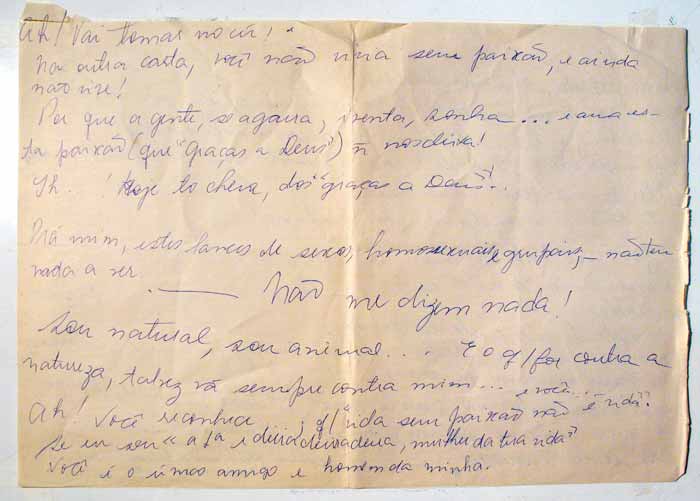 Ah! Vai tomar no cú!
Na outra carta, você não vivia sem paixão, e ainda
não vive!
Por que a gente, se agarra, inventa, sonha... e ama es-
ta paixão (que "graças a Deus") ñ nos deixa!
Ih. ! Hoje to cheia, dos "graças a Deus"!.
Prá mim, estes lances de sexos, homosexuais e grupais, — não tem
nada a ver.
— Não me dizem nada!
Sou natural, sou animal... E o q/ for contra a
natureza, talvez vá sempre contra mim... e você...
Ah! Você reconhece, q/ "vida sem paixão não é vida".
Se eu sou " a 1ª e derradeira, mulher da tua vida"
Você é o único amigo e homem da minha.